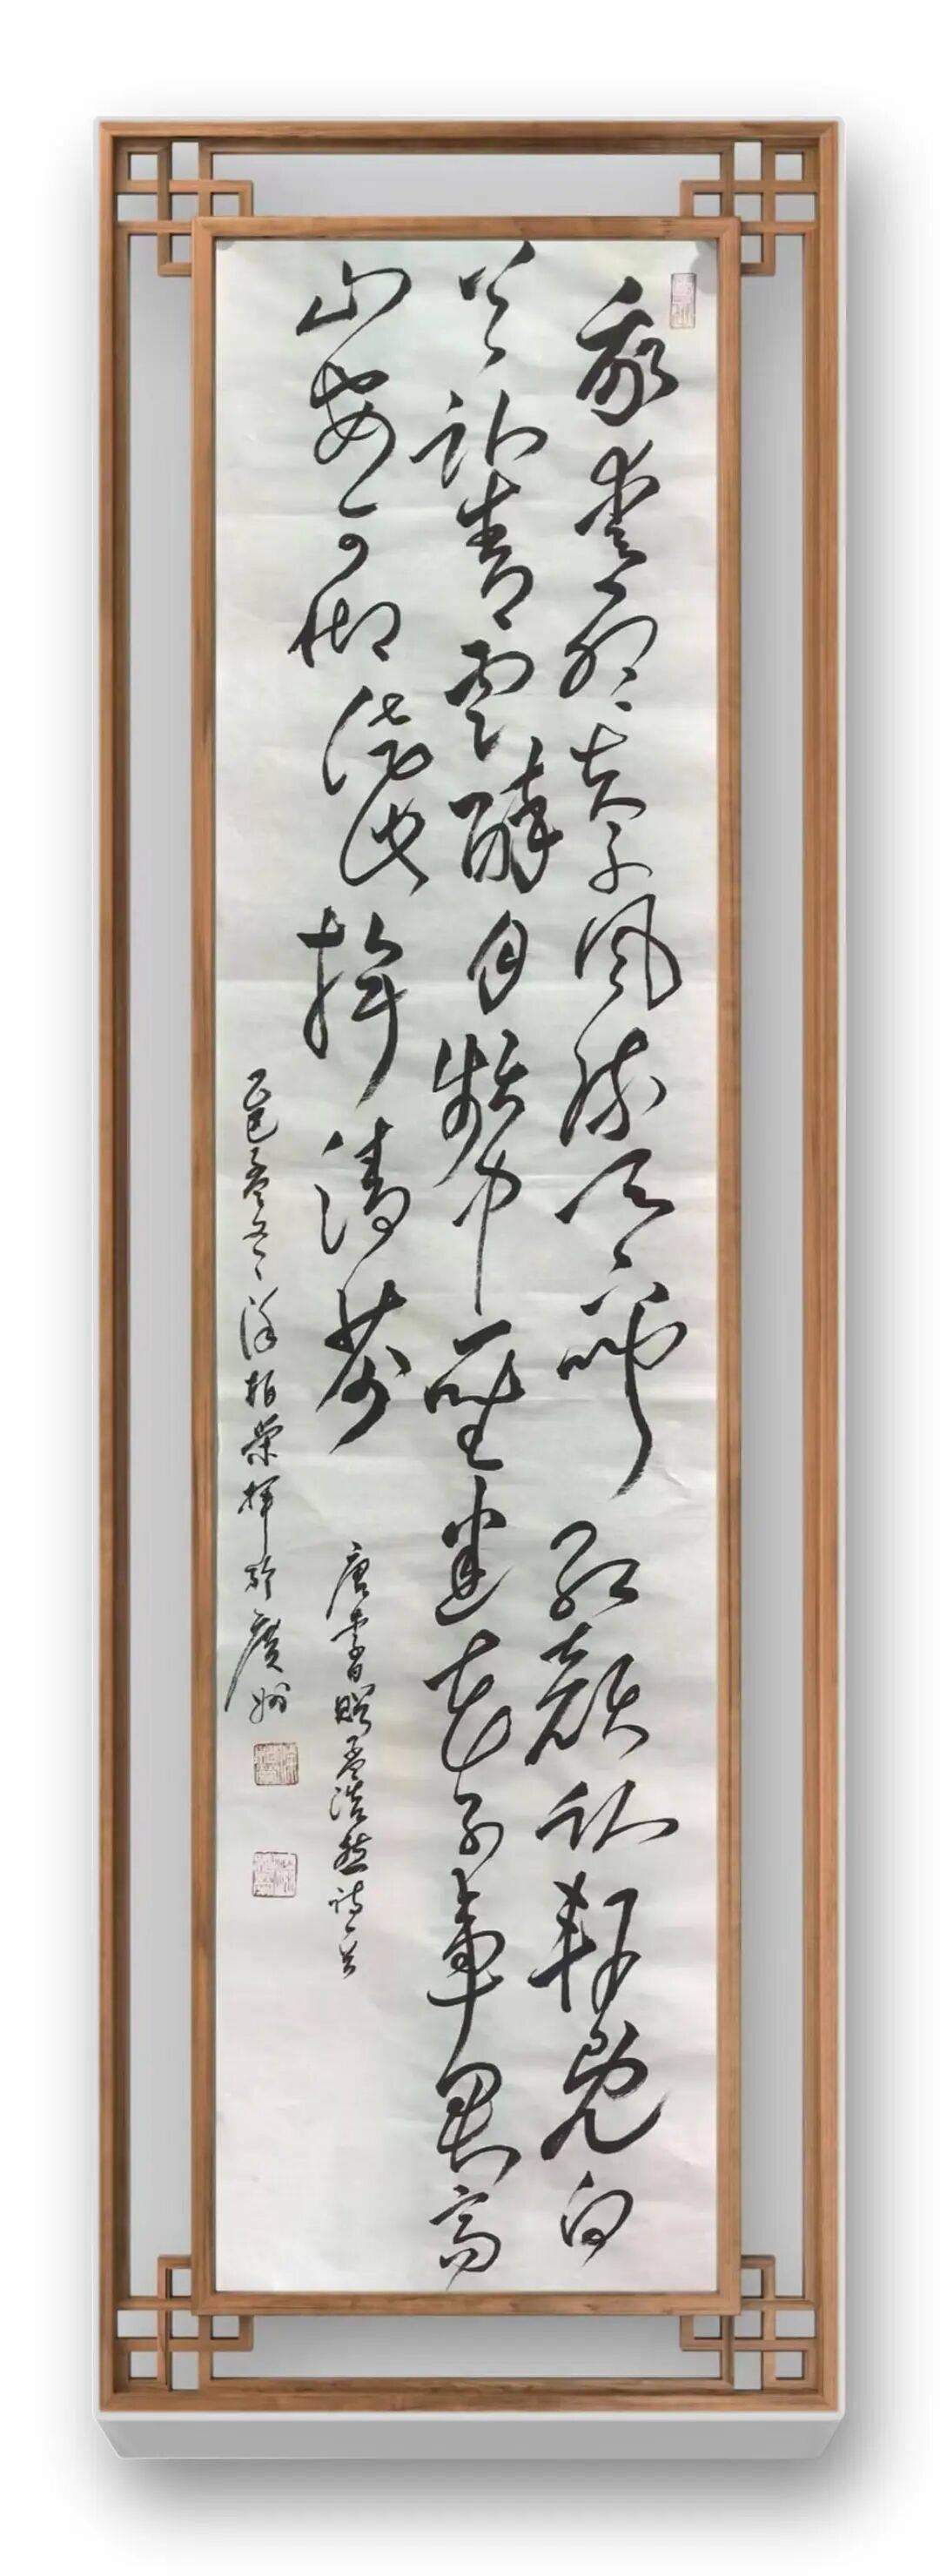 吾愛孟夫子風流天下聞紅顏棄軒冕白
首臥松雲醉月頻中聖迷花不事君高
山安可仰徒此揖清芬
唐李白贈孟浩然詩一首
乙巳孟冬涂柏榮揮於廣州